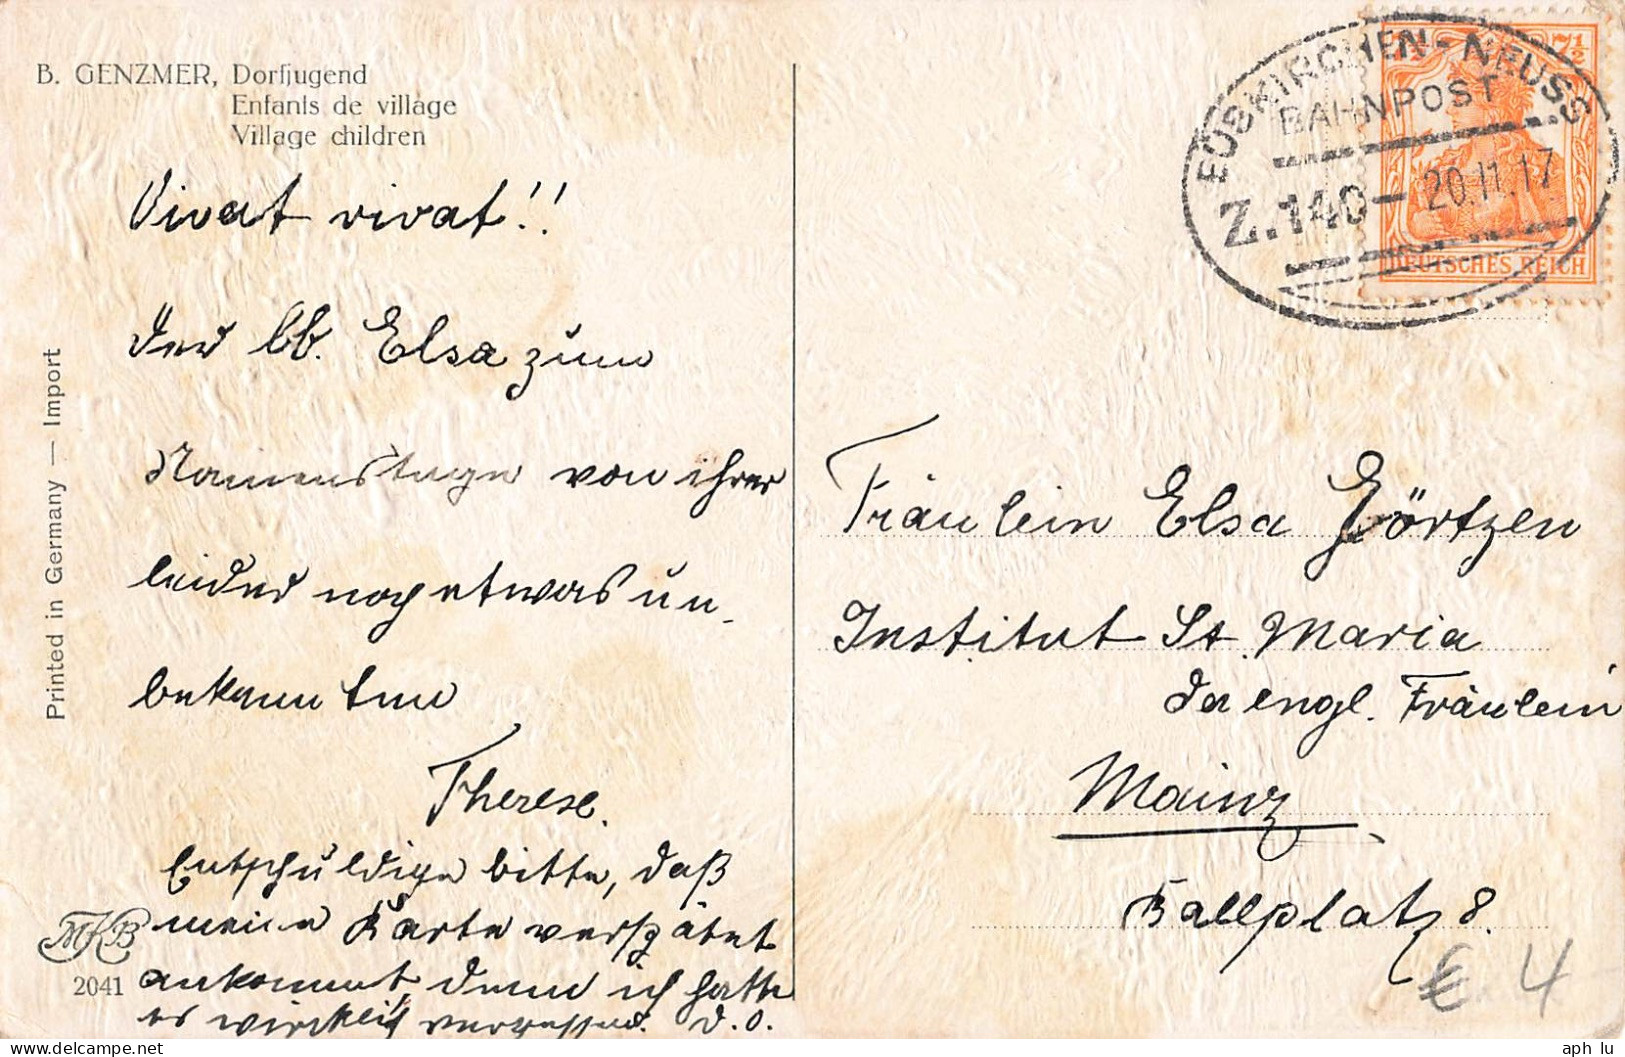 B. GENZMER, Dorfjugend
Enfants de village
Village children
Vivat vivat!!
Der lb. Elsa zum
Namenstage von ihrer
leider noch etwas un-
bekannten
Therese.
Entschuldige bitte, daß
meine Karte verspätet
ankommt denn ich hatte
es wirklich vergessen. D.O.
MKB
2041
Printed in Germany — Import
EUSKIRCHEN-NEUSS
BAHNPOST
Z.140 20.11.17
7½
DEUTSCHES REICH
Fräulein Elsa Görtzen
Institut St. Maria
der engl. Fräulein
Mainz
Ballplatz 8.
€ 4
aph_lu
© delcampe.net